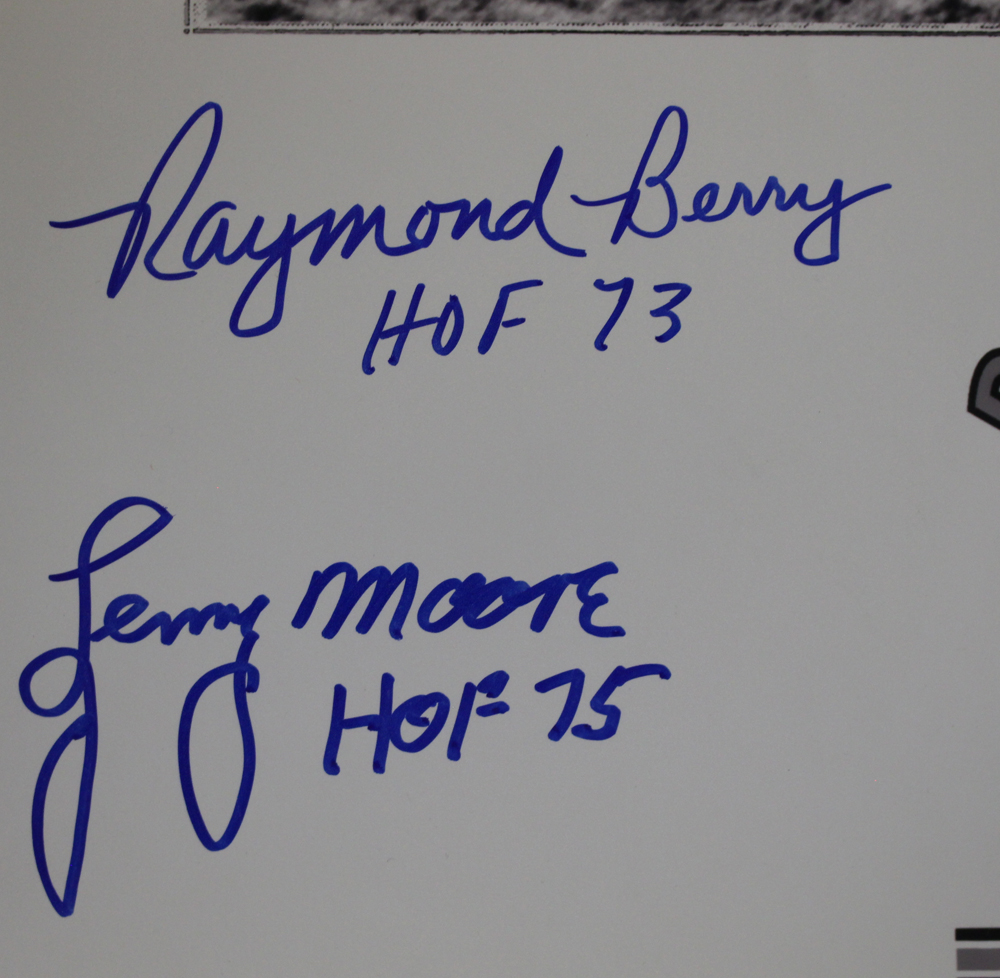 Raymond Berry
HOF 73
Lenny Moore
HOF 75